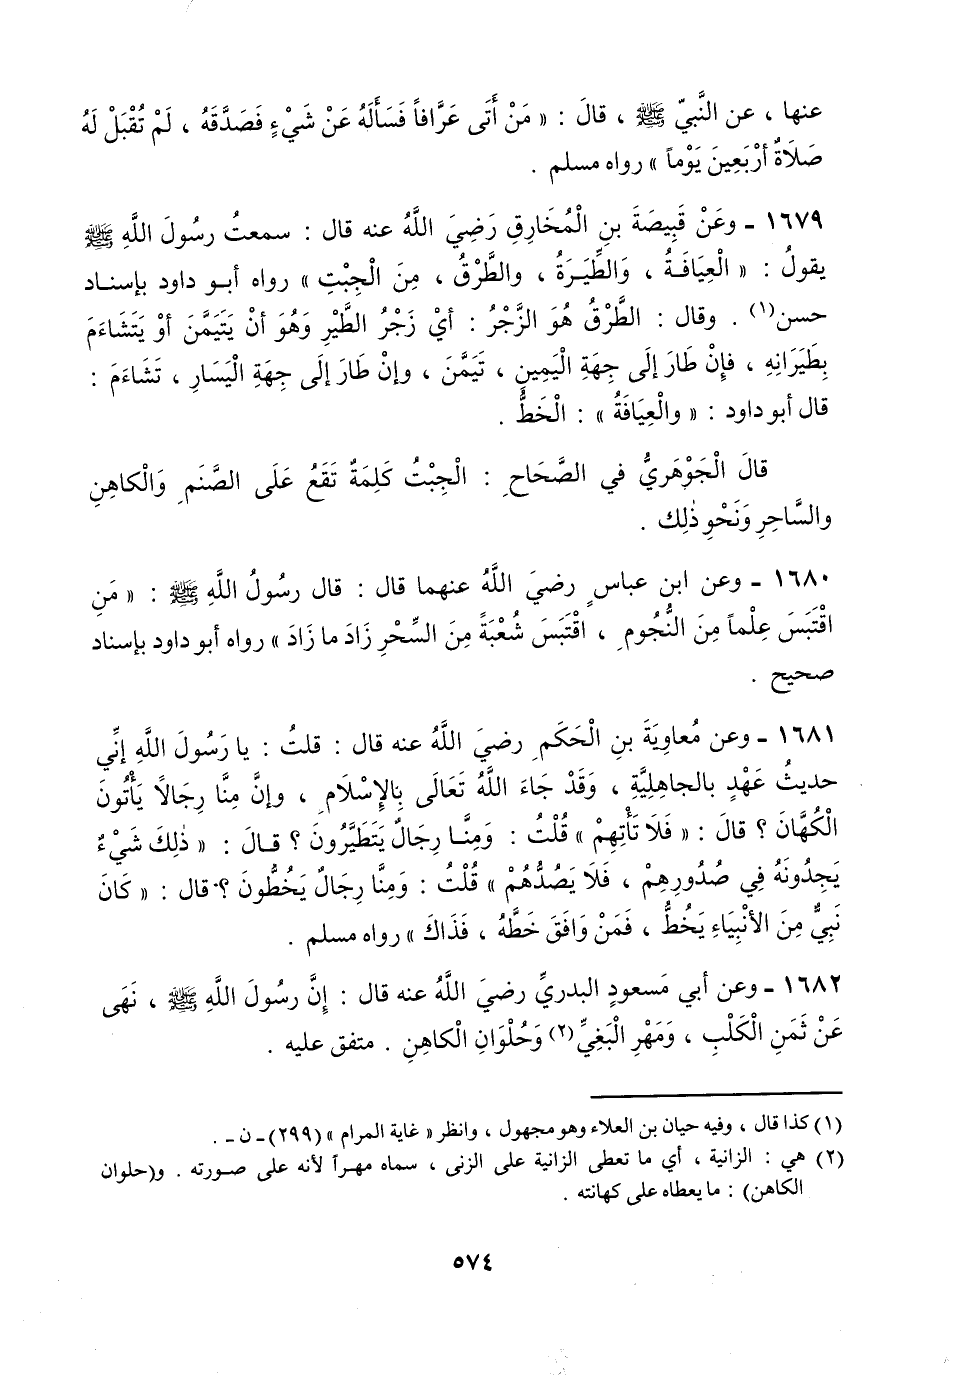 عنها ، عن النَّبيّ ﷺ ، قالَ : « مَنْ أَتَى عَرَّافاً فَسَأَلَهُ عَنْ شَيْءٍ فَصَدَّقَهُ ، لَمْ تُقْبَلْ لَهُ
صَلَاةُ أرْبَعِينَ يَوْماً » رواه مسلم .
١٦٧٩ ـ وعَنْ قَبِيصَةَ بنِ الْمُخَارِقِ رَضِيَ اللَّهُ عنه قال : سمعتُ رسُولَ اللَّهِ ﷺ
يقولُ : « الْعِيَافَةُ ، وَالطِّيَرَةُ ، والطَّرْقُ ، مِنَ الْجِبْتِ » رواه أبو داود بإسناد
حسن(١) . وقال : الطَّرْقُ هُوَ الزَّجْرُ : أيْ زَجْرُ الطَّيْرِ وَهُوَ أنْ يَتَيَمَّنَ أوْ يَتَشَاءَمَ
بِطَيَرَانِهِ ، فإنْ طَارَ إلَى جِهَةِ الْيَمِينِ ، تَيَمَّنَ ، وإنْ طَارَ إلَى جِهَةِ الْيَسَارِ ، تَشَاءَمَ :
قال أبو داود : « والْعِيَافَةُ » : الْخَطُّ .
قالَ الْجَوْهَرِيُّ في الصَّحَاحِ : الْجِبْتُ كَلِمَةٌ تَقَعُ عَلَى الصَّنَمِ وَالْكاهِنِ
والسَّاحِرِ وَنَحْوِ ذٰلِك .
١٦٨٠ ـ وعن ابن عباسٍ رضيَ اللَّهُ عنهما قال : قال رسُولُ اللَّهِ ﷺ : « مَنِ
اقْتَبَسَ عِلْماً مِنَ النُّجُومِ ، اقْتَبَسَ شُعْبَةً مِنَ السِّحْرِ زَادَ ما زَادَ » رواه أبو داود بإسناد
صحيح .
١٦٨١ ـ وعن مُعاوِيَةَ بنِ الْحَكَمِ رضيَ اللَّهُ عنه قال : قلتُ : يا رَسُولَ اللَّهِ إنِّي
حديثُ عَهْدٍ بالجاهِلِيَّةِ ، وَقَدْ جَاءَ اللَّهُ تَعَالَى بِالإسْلَامِ ، وإنَّ مِنَّا رِجَالاً يَأْتُونَ
الْكُهَّانَ ؟ قالَ : « فَلَا تَأْتِهِمْ » قُلْتُ : وَمِنَّا رِجَالٌ يَتَطَيَّرُونَ ؟ قالَ : « ذٰلِكَ شَيْءٌ
يَجِدُونَهُ فِي صُدُورِهِمْ ، فَلَا يَصُدُّهُمْ » قُلْتُ : وَمِنَّا رِجَالٌ يَخُطُّونَ ؟ قال : « كَانَ
نَبِيٌّ مِنَ الأنْبِيَاءِ يَخُطُّ ، فَمَنْ وَافَقَ خَطَّهُ ، فَذَاكَ » رواه مسلم .
١٦٨٢ ـ وعن أبي مَسعودٍ البدريِّ رضيَ اللَّهُ عنه قال : إنَّ رسُولَ اللَّهِ ﷺ ، نَهَى
عَنْ ثَمَنِ الْكَلْبِ ، وَمَهْرِ الْبَغِيِّ(٢) وَحُلْوَانِ الْكاهِنِ . متفق عليه .
(١) كذا قال ، وفيه حيان بن العلاء وهو مجهول ، وانظر « غاية المرام » (٢٩٩) ـ ن ـ .
(٢) هي : الزانية ، أي ما تعطى الزانية على الزنى ، سماه مهراً لأنه على صورته . و(حلوان
الكاهن) : ما يعطاه على كهانته .
٥٧٤